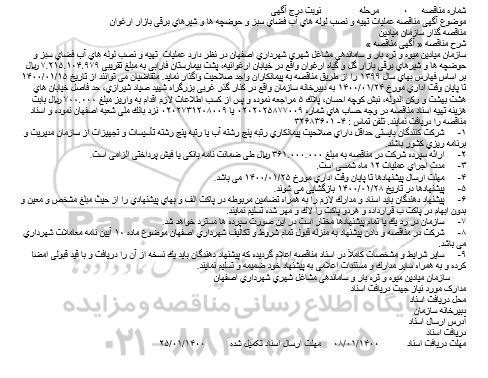 شماره مناقصه ۰ مرحله نوبت درج آگهي
موضوع آگهي مناقصه عمليات تهيه و نصب لوله هاي آب فضاي سبز و حوضچه ها و شيرهاي برقي بازار ارغوان
مناقصه گذار سازمان ميادين
شرح مناقصه « آگهي مناقصه »
سازمان ميادين ميوه و تره بار و ساماندهي مشاغل شهري شهرداري اصفهان در نظر دارد عمليات تهيه و نصب لوله هاي آب فضاي سبز و
حوضچه ها و شيرهاي برقي بازار گل و گياه ارغوان واقع در خيابان ارغوانيه، پشت بيمارستان فارابي به مبلغ تقريبي ۷،۲۱۵،۱۰۴،۹۷۹ ريال
بر اساس فهارس بهاي سال ۱۳۹۹ را از طريق مناقصه به پيمانكاران واحد صلاحيت واگذار نمايد. متقاضيان مي توانند از تاريخ ۱۴۰۰/۰۱/۱۵
تا پايان وقت اداري مورخ ۱۴۰۰/۰۱/۲۴ به دبيرخانه سازمان واقع در كنار گذر غربي بزرگراه شهيد صياد شيرازي، حد فاصل خيابان هاي
هشت بهشت و ركن الدوله، نبش كوچه احسان، پلاك ۵ مراجعه نموده و پس از كسب اطلاعات لازم اقدام به واريز مبلغ ۷۰۰،۰۰۰ ريال بابت
هزينه تهيه اسناد مناقصه در وجه حساب هاي شماره ۰۲۰۲۰۲۵۸۷۷۰۰۹ يا ۰۲۰۲۷۳۱۲۰۸۰۰۹ نزد بانك ملي شعبه اصفهان نموده و اسناد
مناقصه را دريافت نمايند. تلفن تماس : ۴- ۳۲۴۸۳۶۰۱
۱- شركت كنندگان بايستي حداقل داراي صلاحيت پيمانكاري رتبه پنج رشته آب يا رتبه پنج رشته تأسيسات و تجهيزات از سازمان مديريت و
برنامه ريزي كشور باشند.
۲- ارائه سپرده شركت در مناقصه به مبلغ ۳۶۱،۰۰۰،۰۰۰ ريال طي ضمانت نامه بانكي يا فيش پرداختي الزامي است.
۳- مدت اجراي عمليات ۱۲ ماه شمسي است.
۴- مهلت ارسال پيشنهادها تا پايان وقت اداري مورخ ۱۴۰۰/۰۱/۲۵ مي باشد.
۵- پيشنهادها در تاريخ ۱۴۰۰/۰۱/۲۸ بازگشايي مي شوند.
۶- پيشنهاد دهندگان بايد اسناد و مدارك لازم را به همراه تضامين مربوطه در پاكت الف و بهاي پيشنهادي را از حيث مبلغ مشخص و معين و
بدون ابهام در پاكت ب قرارداده و هردو پاكت را لاك و مهر شده تسليم نمايند.
۷- سازمان در رد يك يا تمام پيشنهادها مختار است در اين صورت سپرده ها مسترد خواهد شد.
۸- شركت در مناقصه و دادن پيشنهاد به منزله قبول تمام شروط و تكاليف شهرداري اصفهان موضوع ماده ۱۰ آيين نامه معاملات شهرداري
مي باشد.
۹- ساير شرايط و مشخصات كاملاً در اسناد مناقصه اعلام گرديده كه پيشنهاد دهندگان بايد يك نسخه از آن را دريافت و با قيد قبولي امضا
كرده و به همراه ساير مدارك و مستندات اعلامي به پيشنهاد خود ضميمه و تسليم نمايند.
سازمان ميادين ميوه و تره بار و ساماندهي مشاغل شهري شهرداري اصفهان
مدارک مورد نیاز جهت دریافت اسناد
محل دریافت اسناد
دبیرخانه سازمان
آدرس ارسال اسناد
دریافت اسناد
مهلت دریافت اسناد ۰۸/۰۱/۱۴۰۰ مهلت ارسال اسناد تکمیل شده ۲۵/۰۱/۱۴۰۰
پایگاه اطلاع رسانی مناقصه و مزایده